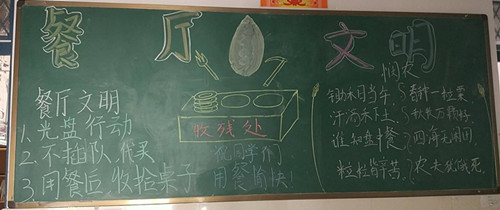 餐厅文明
餐厅文明
1. 光盘行动
2. 不插队、代买
3. 用餐后,收拾桌子
收残处
祝同学们
用餐愉快!
悯农
锄禾日当午,
汗滴禾下土。
谁知盘中餐,
粒粒皆辛苦。
春种一粒粟
秋收万颗籽
四海无闲田
农夫犹饿死